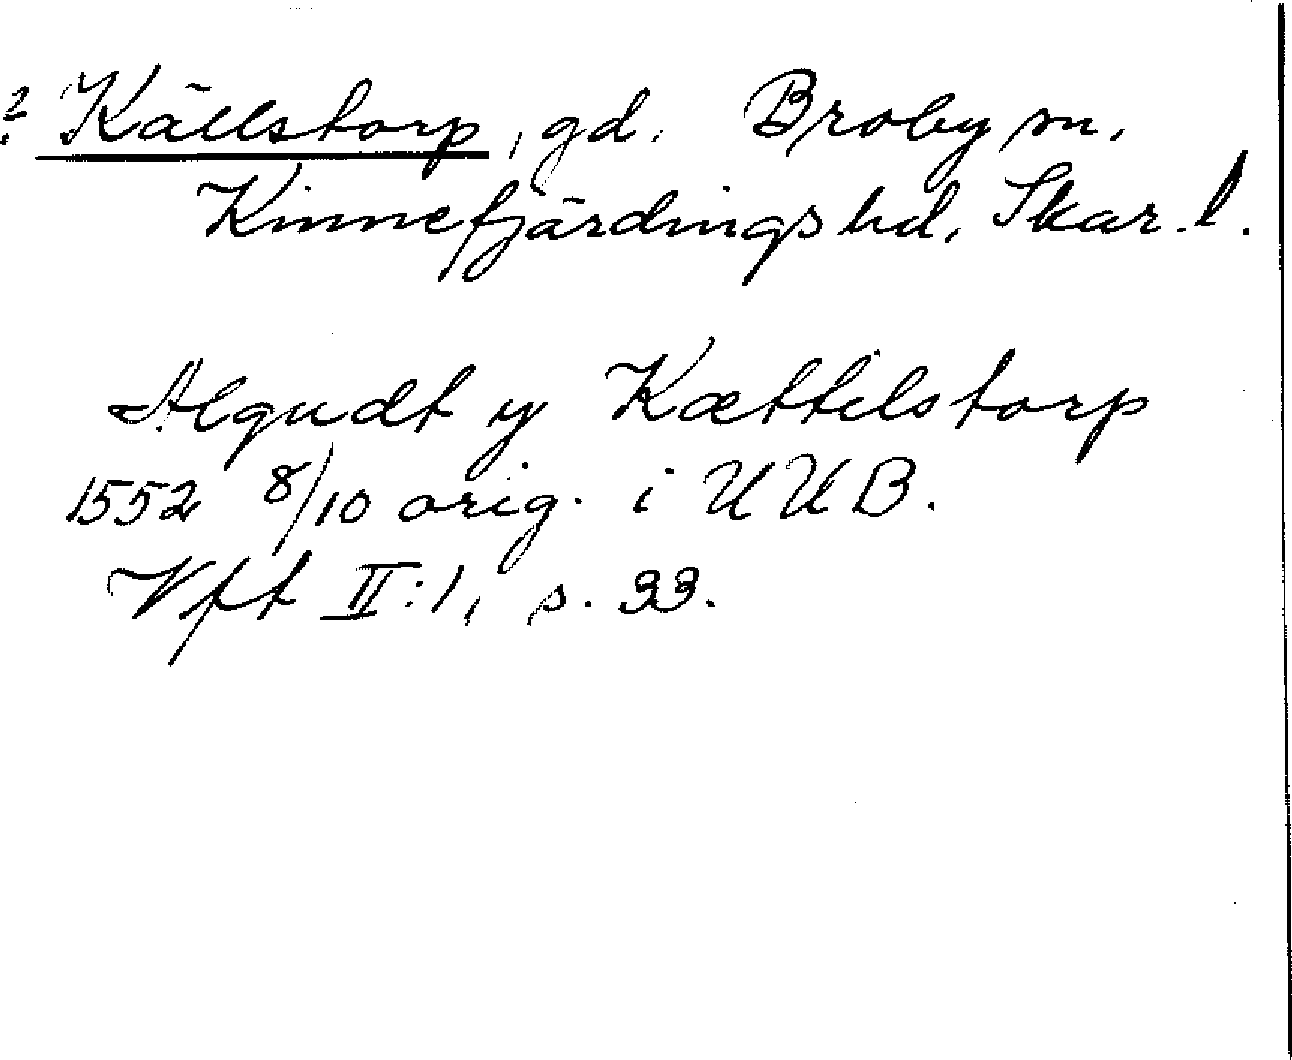 ? Källstorp, gd. Broby sn,
Kinnefjärdings hd, Skar. l.
Algudt y Kættelstorp
1552 8/10 orig. i UUB.
Vft II:1, s. 33.